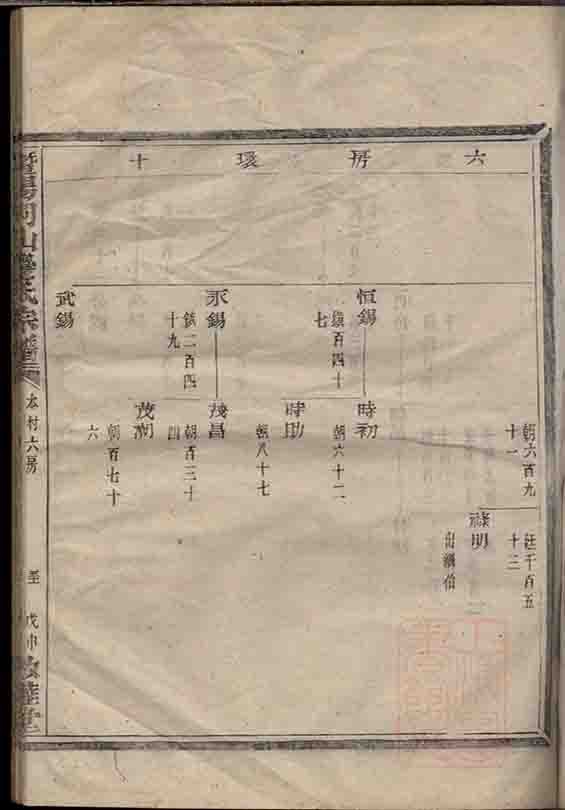 六房環十
朝六百九
十一
汪千百五
十三
祿明
出繼伯
恒錫
鎮百四十
七
時初
朝六十二
時助
朝八十七
永錫
鎮二百四
十九
茂昌
朝百三十
四
茂湖
朝百七十
六
武錫
氏宗譜
本村六房
戊申